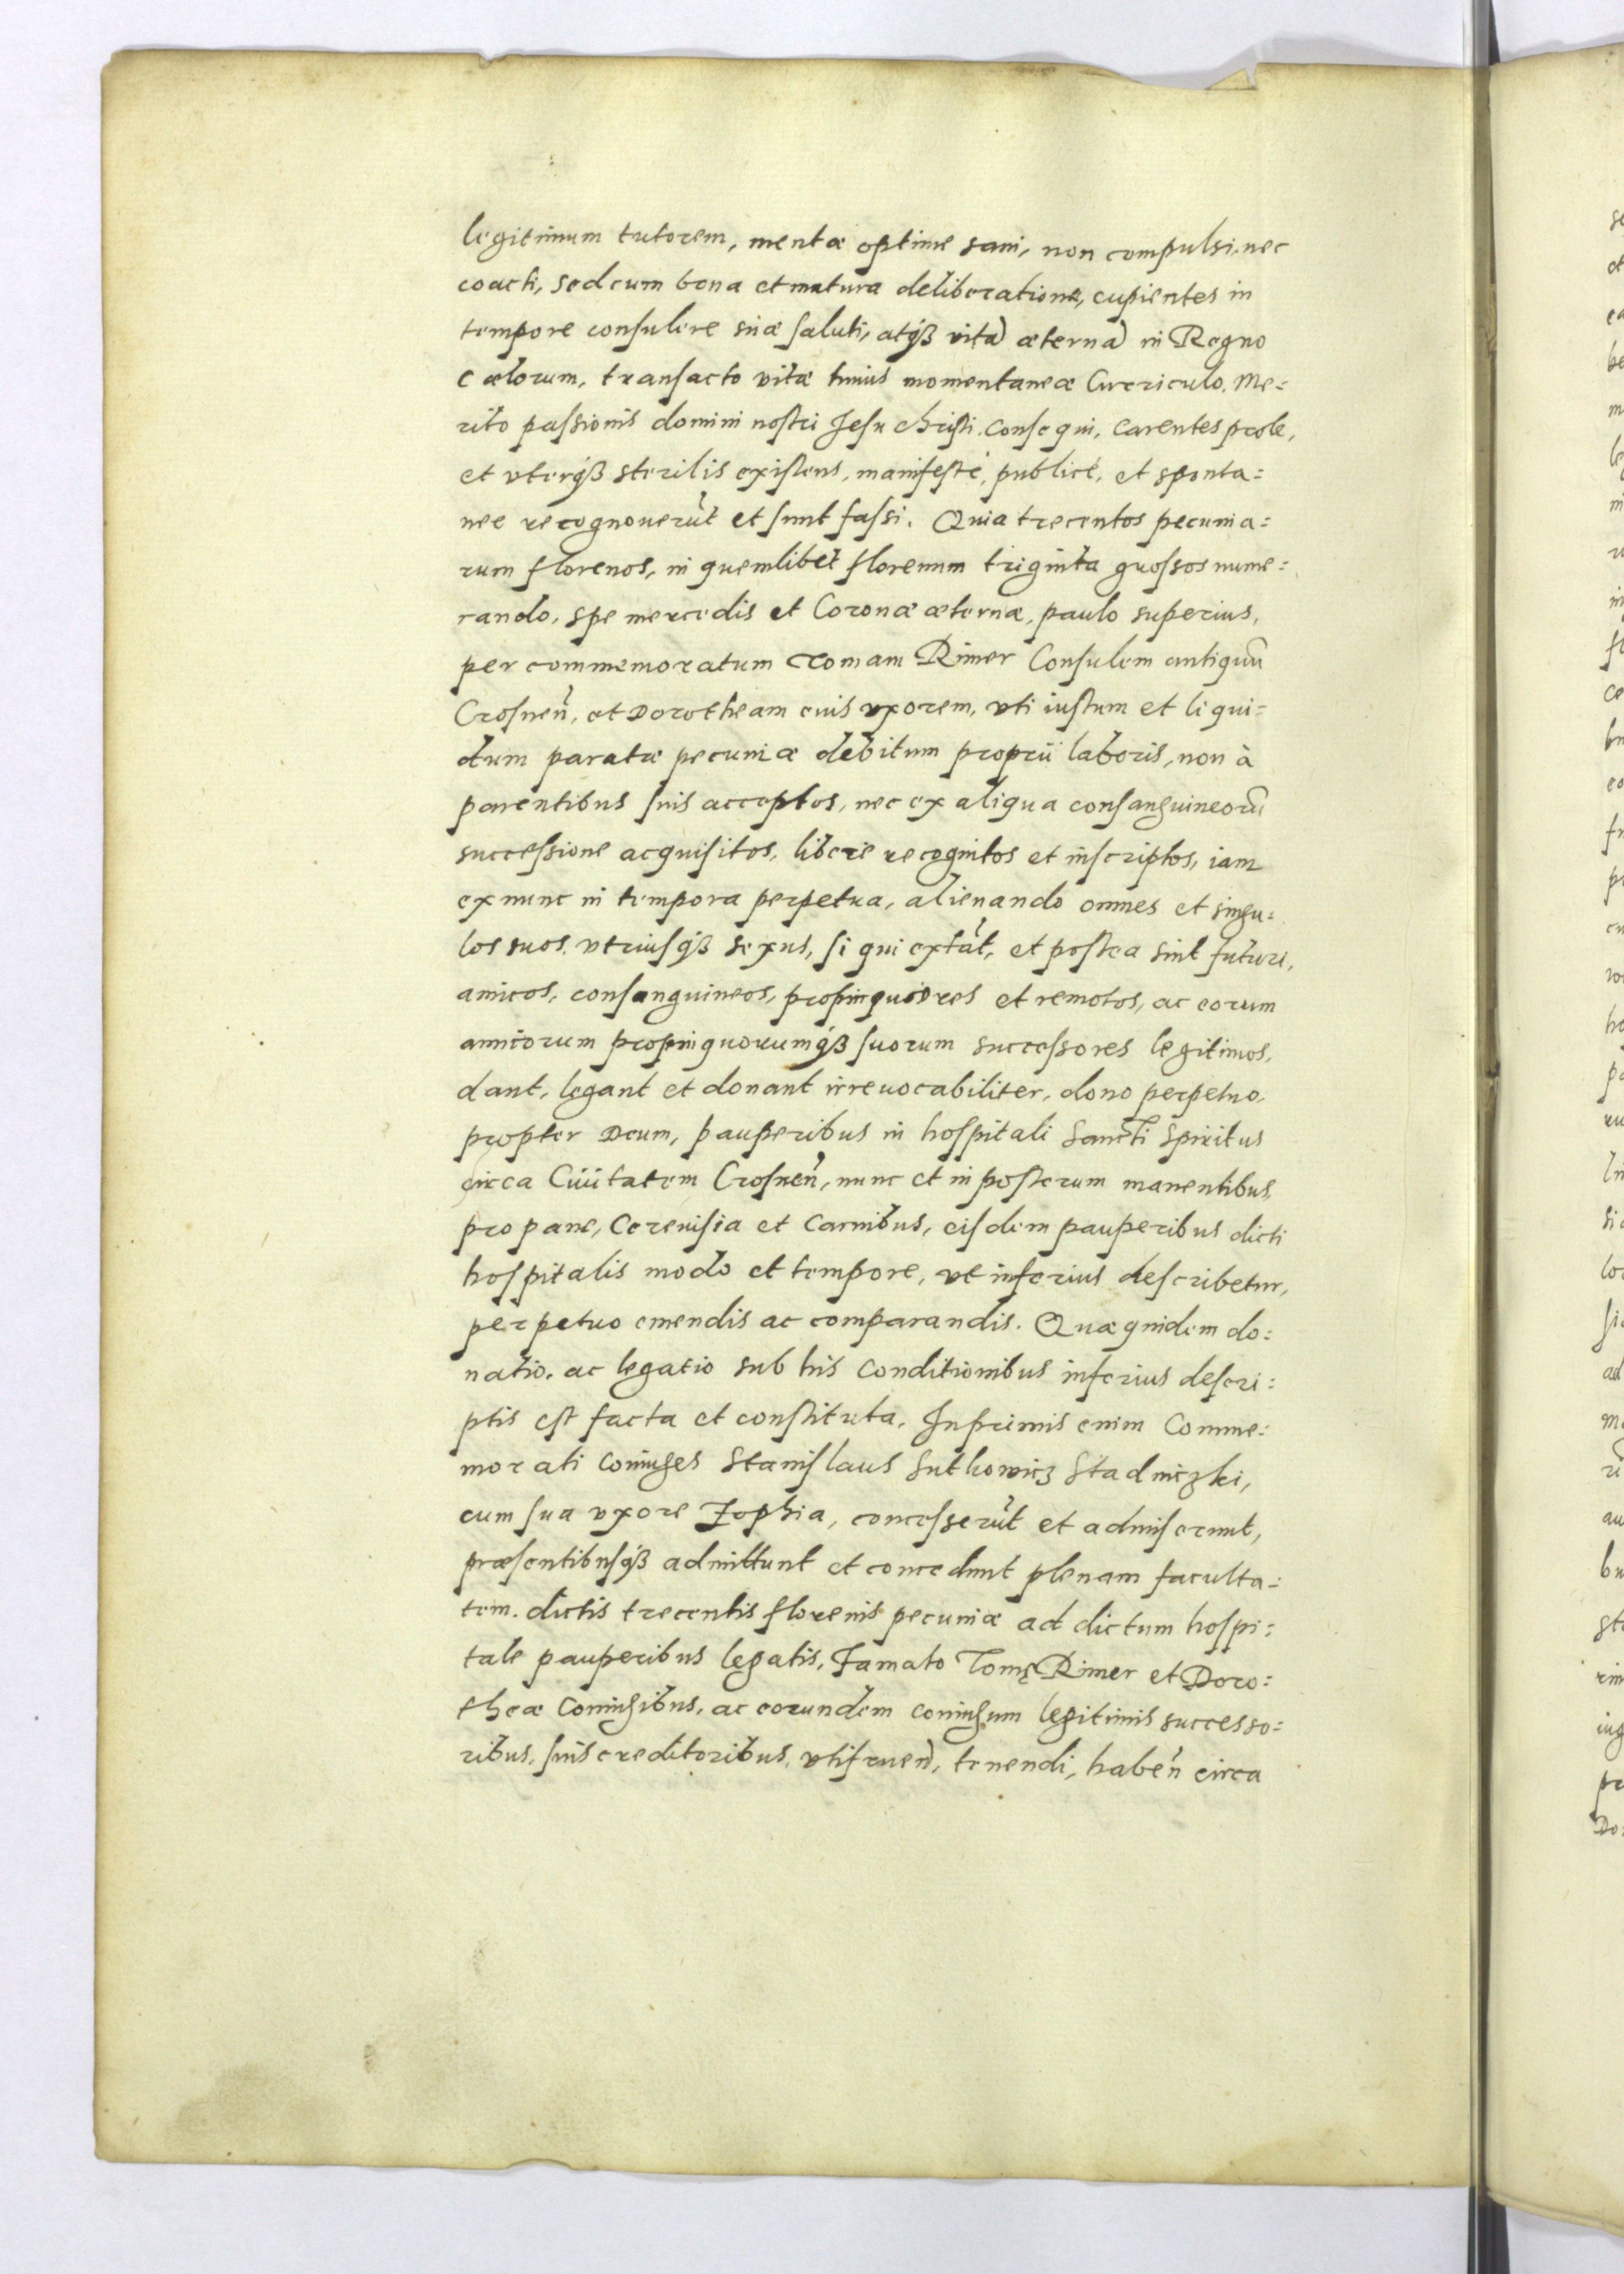 legitimum tutorem, mentæ optime sani, non compulsi, nec
coacti, sed cum bona et matura deliberatione, cupientes in
tempore consulere suæ saluti, atq́ꝫ vitã æternã in Regno
cælorum, transacto vitæ huius momentaneæ Curriculo. Me=
rito passionis domini nostri Jesu christi. Consequi, carentes prole,
et vterq́ꝫ sterilis existens, manifesté, publicé, et sponta=
nee recognouerũt et sunt fassi. Quia trecentos pecunia=
rum florenos, in quemlibet florenum triginta grossos nume=
rando, spe mercedis et Coronæ æternæ, paulo superius,
per commemoratum Tomam Rimer Consulem antiquũ
Crosneñ, et Dorotheam eius vxorem, vti iustum et liqui=
dum paratæ pecuniæ debitum proprii laboris, non à
parentibus suis acceptos, nec ex aliqua consanguineorũ
successione acquisitos, liberè recognitos et inscriptos, iam
ex nunc in tempora perpetua, alienando omnes et singu=
los suos vtriusq́ꝫ sexus, si qui extãt, et postea sint futuri,
amicos, consanguineos, propinquiores et remotos, ac eorum
amicorum propinquorumq́ꝫ suorum successores legitimos,
dant, legant et donant irreuocabiliter, dono perpetuo,
propter Deum, pauperibus in hospitali Sancti Spiritus
circa Ciuitatem Crosneñ, nunc et in posterum manentibus,
pro pane, Cereuisia et Carnibus, eisdem pauperibus dicti
hospitalis modo et tempore, vt inferius describetur,
perpetuo emendis ac comparandis. Quæ quidem do=
natio, ac legatio sub his Conditionibus inferius descri=
ptis est facta et constituta. Inprimis enim Comme=
morati Coniuges Stanislaus Sutkowicz Stadniczki,
cum sua vxore Zophia, concesserũt et admiserunt,
præsentibusq́ꝫ admittunt et concedunt plenam faculta=
tem. dictis trecentis florenis pecuniæ ad dictum hospi=
tale pauperibus legatis, Famato Tomę Rimer et Doro=
theæ Coniugibus, ac eorundem coniugum legitimis successo=
ribus, suis creditoribus, vtifrueñ, tenendi, habeñ circa